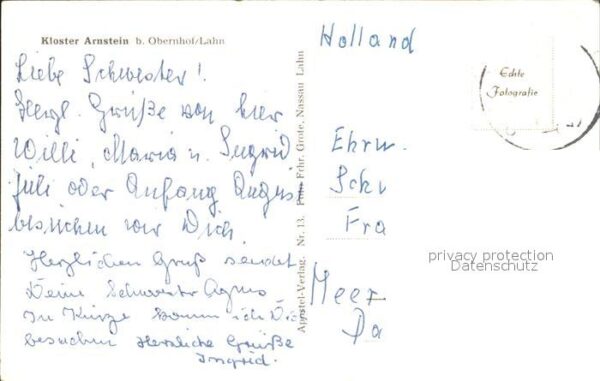 Kloster Arnstein b. Obernhof/Lahn
Liebe Schwester!
Herzl. Grüße von hier
Willi, Maria u. Ingrid
Juli oder Anfang August
besuchen wir Dich.
Herzlichen Gruß sendet
Deine Schwester Agnes
In Kürze komm ich Dich
besuchen Herzliche Grüße
Ingrid.
Apostel-Verlag Nr. 13. Foto Fritz Grote, Nassau Lahn
Holland
Echte
Fotografie
Ehrw.
Schw
Fra
Meer
Da
privacy protection
Datenschutz